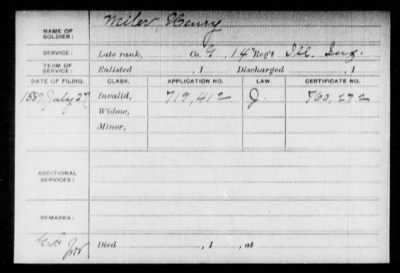 NAME OF SOLDIER: Miler, Henry
SERVICE: Late rank, Co. G, 14" Reg't Ill. Inf.
TERM OF SERVICE: Enlisted , 1 Discharged , 1
DATE OF FILING. CLASS. APPLICATION NO. LAW. CERTIFICATE NO.
1889 July 27 Invalid, 719,412 J
Widow,
Minor,
ADDITIONAL SERVICES:
REMARKS:
Died , 1 , at